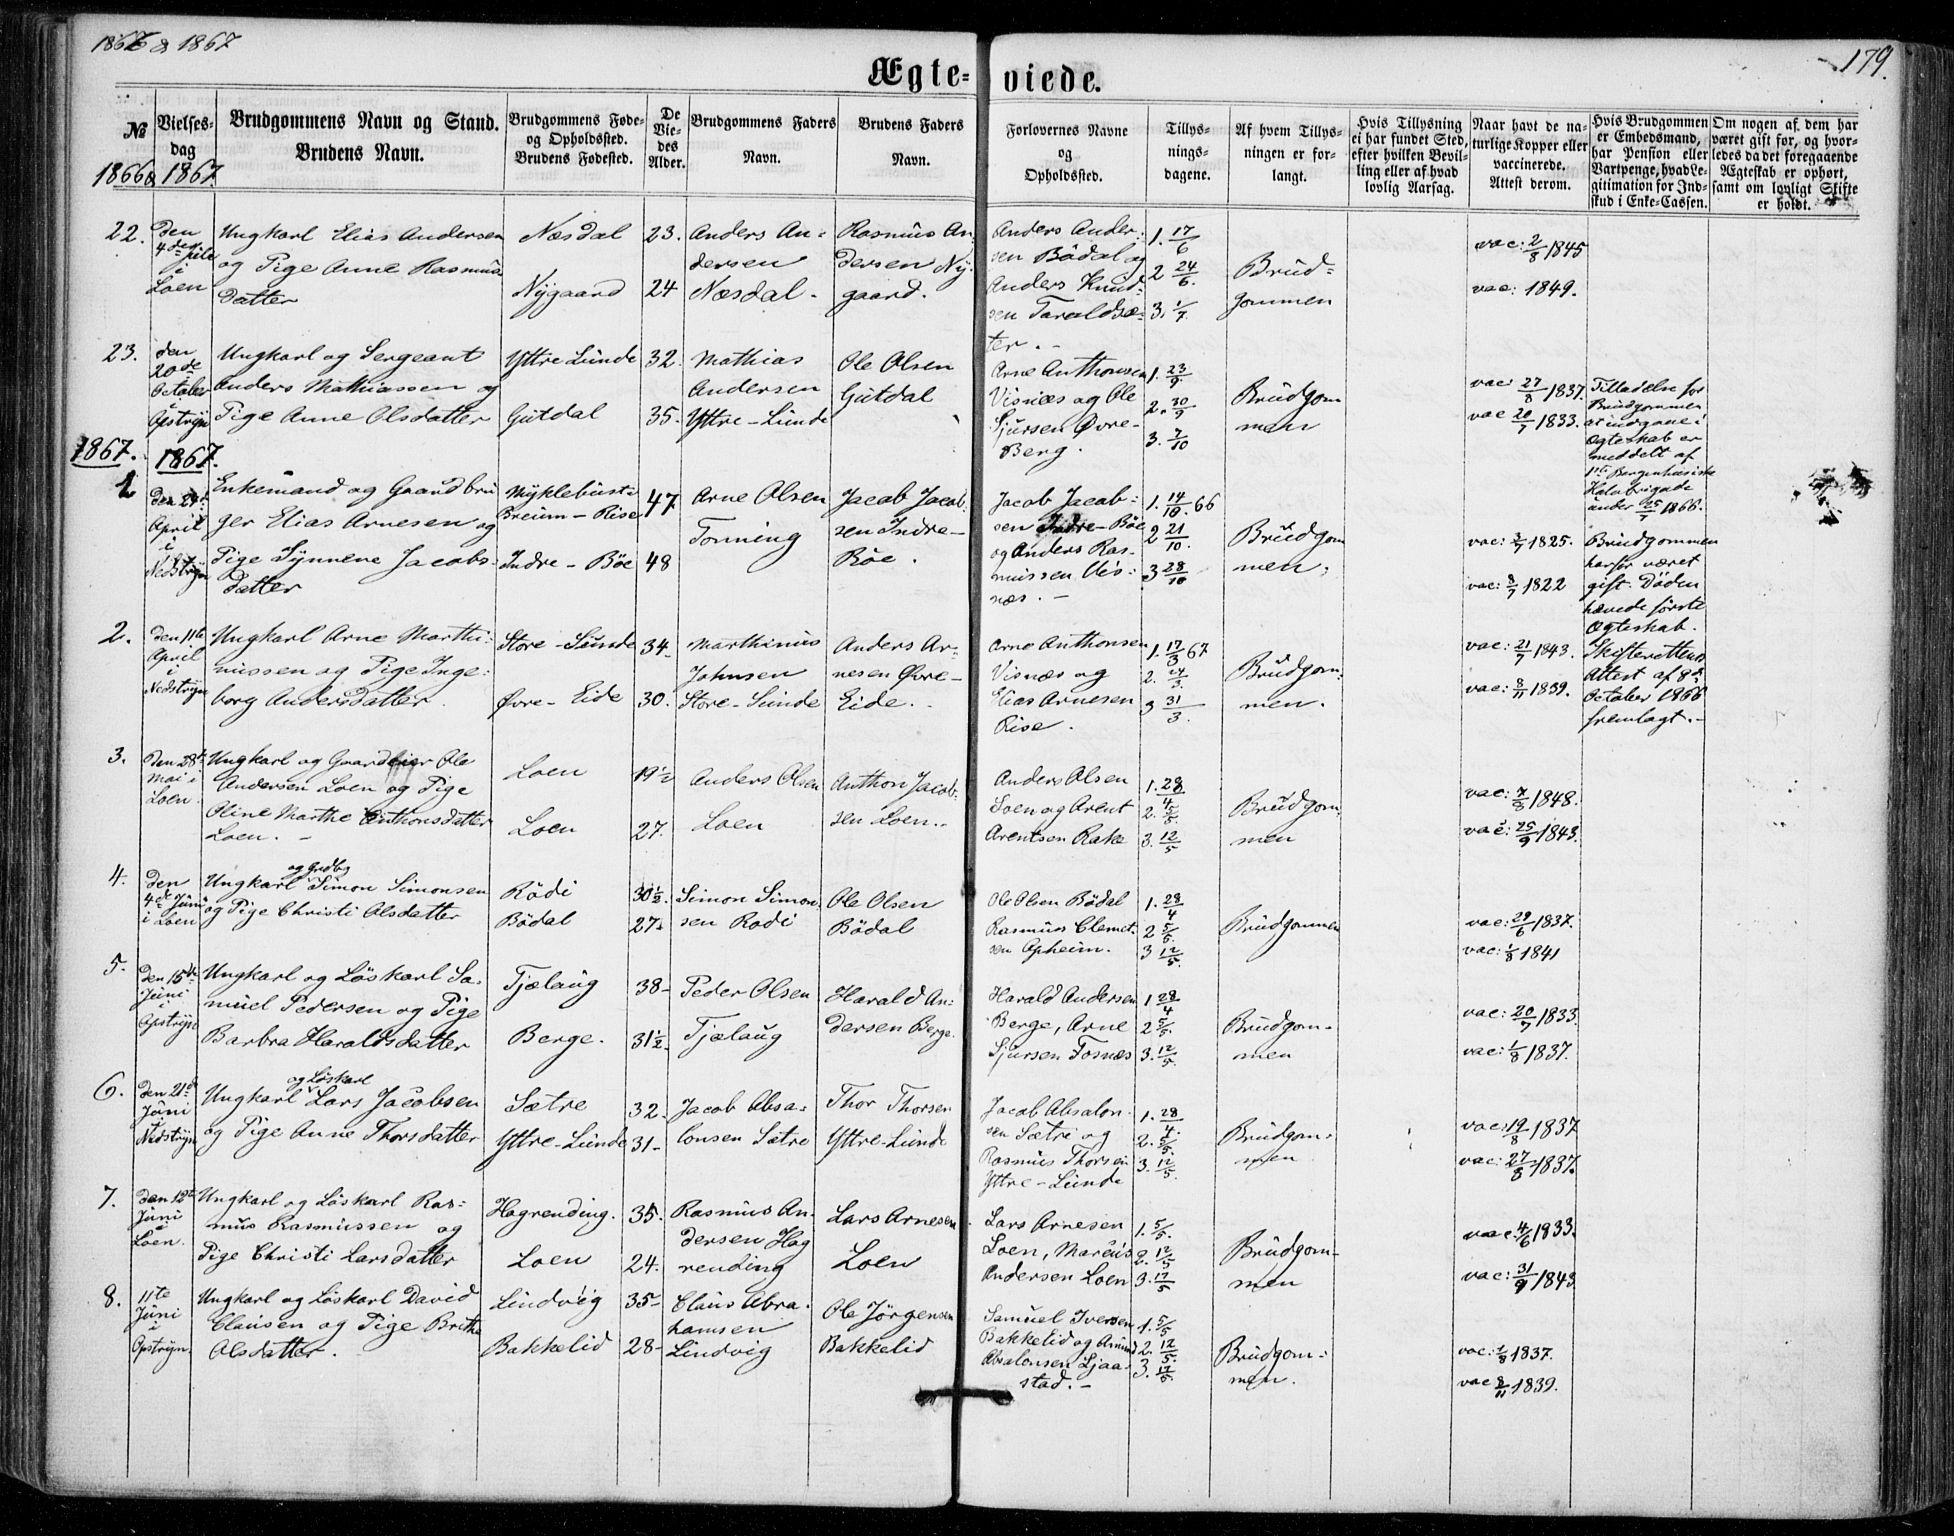 1866 & 1867
179.
Ægte-viede.
№
Vielses-
dag
Brudgommens Navn og Stand.
Brudens Navn.
Brudgommens Føde-
og Opholdssted.
Brudens Fødested.
De
Vie-
des
Alder.
Brudgommens Faders
Navn.
Brudens Faders
Navn.
Forlovernes Navne
og
Opholdssted.
Tillys-
nings-
dagene.
Af hvem Tillys-
ningen er for-
langt.
Hvis Tillysning
ei har fundet Sted,
efter hvilken Bevil-
ling eller af hvad
lovlig Aarsag.
Naar havt de na-
turlige Kopper eller
vaccinerede.
Attest derom.
Hvis Brudgommen
er Embedsmand,
har Pension eller
Vartpenge, hvad Le-
gitimation for Ind-
skud i Enke-Cassen.
Om nogen af dem har
været gift før, og hvor-
ledes da det foregaaende
Ægteskab er ophørt,
samt om lovligt Skifte
er holdt.
1866 & 1867.
22.
den
4de Juli
i
Loen
Ungkarl Elias Andersen
og Pige Anne Rasmus-
datter
Næsdal
Nygaard
23.
24
Anders An-
dersen
Næsdal.
Rasmus An-
dersen Ny-
gaard.
Anders Ander-
sen Bödal og
Anders Knud-
sen Taraldsæ-
ter.
1. 17/6
2 24/6.
3. 1/7.
Brud-
gommen
vac: 2/8 1845
vac: 1849.
23.
den
20de
October
i
Opstryn
Ungkarl og Sergeant
Anders Mathiassen og
Pige Anne Olsdatter
Yttre Lunde
Gutdal
32.
35.
Mathias
Andersen
Yttre-Lunde
Ole Olsen
Gutdal
Arne Anthonsen
Visnæs og Ole
Sjursen Øvre-
Berg.
1. 23/9.
2. 30/9
3. 7/10
Brudgom
men
vac: 27/8 1837.
vac 20/7 1833.
Tilladelse for
Brudgommen
at indgaae i
Ægteskab er
meddelt af
Bergenhusiske
under 25/7 1866.
1867. 1867.
1
April
i
Nedstryn
Enkemand og Gaardbru
ger Elias Arnesen og
Pige Synneve Jacobs-
datter
Myklebust i
Breum-Rise
Indre-Böe
47
48
Arne Olsen
Tonning
Jacob Jacob-
sen Indre-
Böe.
Jacob Jacob-
sen Indre-Böe
og Anders Ras-
mussen Vis-
næs.
1. 14/10. 66
2 21/10.
3 28/10
Brudgom
men.
vac: 3/7 1825.
vac: 8/7 1822
Brudgommen
har før været
gift. Döden
hævede første
Ægteskab.
Skifterettens
Attest af 8de
October 1866
fremlagt.
2.
Den 11te
April
i
Nedstryn
Ungkarl Arne Marthi-
nussen og Pige Inge-
borg Andersdatter.
Store-Sunde
Øvre-Eide
34.
30.
Marthinus
Johnsen
Store-Sunde
Anders Ar-
nesen Øvre-
Eide.
Arne Anthonsen
Visnæs og
Elias Arnesen
Rise.
1. 17/3 67
2. 24/3.
3 31/3.
Brudgom-
men.
vac: 21/7 1843.
vac: 8/11 1839.
3.
Den 28de
Mai i
Loen.
Ungkarl og Gaardeier Ole
Andersen Loen og Pige
Oline Marthe Anthonsdatter
Loen.
Loen
Loen
19½
27.
Anders Olsen
Loen
Anthon Jacob-
sen Loen.
Anders Olsen
Loen og Arent
Arentsen Rake
1. 28/4
2. 5/5.
3. 12/5
Brudgom-
men
vac: 7/8 1848.
vac: 25/9 1843.
4.
Den
4de Juni
i Loen
og Grdbg
Ungkarl Simon Simonsen
og Pige Christi Olsdatter
Rödi
Bödal
30½.
27.
Simon Simon-
sen Rödi
Ole Olsen
Bödal
Ole Olsen Bödal
Rasmus Clemet-
sen Opheim.
1. 28/4
2 5/5.
3 12/5.
Brudgommen
vac: 29/6 1837.
vac: 1/8 1841
5.
Den 15de
Juni
i
Opstryn
Ungkarl og Löskarl Sa-
muel Pedersen og Pige
Barbra Haraldsdatter
Tjælaug
Berge.
38
31½
Peder Olsen
Tjælaug
Harald An-
dersen Berge.
Harald Andersen
Berge, Arne
Sjursen Fosnæs
1 28/4
2 5/5.
3. 12/5.
Brudgom-
men
vac: 20/7 1833
vac: 1/8 1837.
6.
Den 21de
Juni
i
Nedstryn
og Löskarl
Ungkarl Lars Jacobsen
og Pige Anne Thorsdatter
Sætre
Yttre-Lunde
32.
31
Jacob Absa-
lonsen Sætre
Thor Thorsen
Yttre-Lunde
Jacob Absalon-
sen Sætre og
Rasmus Thorsen
Yttre-Lunde
1. 28/4.
2. 5/5.
3. 12/5.
Brudgom-
men
vac: 19/8 1837
vac: 27/8 1837.
7.
Den 12te
Juni
i
Loen.
Ungkarl og Löskarl Ras-
mus Rasmussen og
Pige Christi Larsdatter
Hogrending.
Loen
35.
24.
Rasmus An-
dersen Hog
rending
Lars Arnesen
Loen
Lars Arnesen
Loen, Marcus
Andersen Loen
1. 5/5.
2. 12/5
3. 17/5
Brudgom-
men
vac. 4/6 1833.
vac: 31/9 1843
8.
11te
Juni
i
Opstryn.
Ungkarl og Löskarl David
Clausen og Pige Brithe
Olsdatter.
Lindvig
Bakkelid
35
28
Claus Abra-
hamsen
Lindvig
Ole Jörgensen
Bakkelid
Samuel Iversen
Bakkelid og Amund
Absalonsen Ljaa-
stad.
1. 5/5
2. 12/5.
3. 17/5
Brudgom-
men.
vac: 1/8 1837.
vac 8/11 1839.